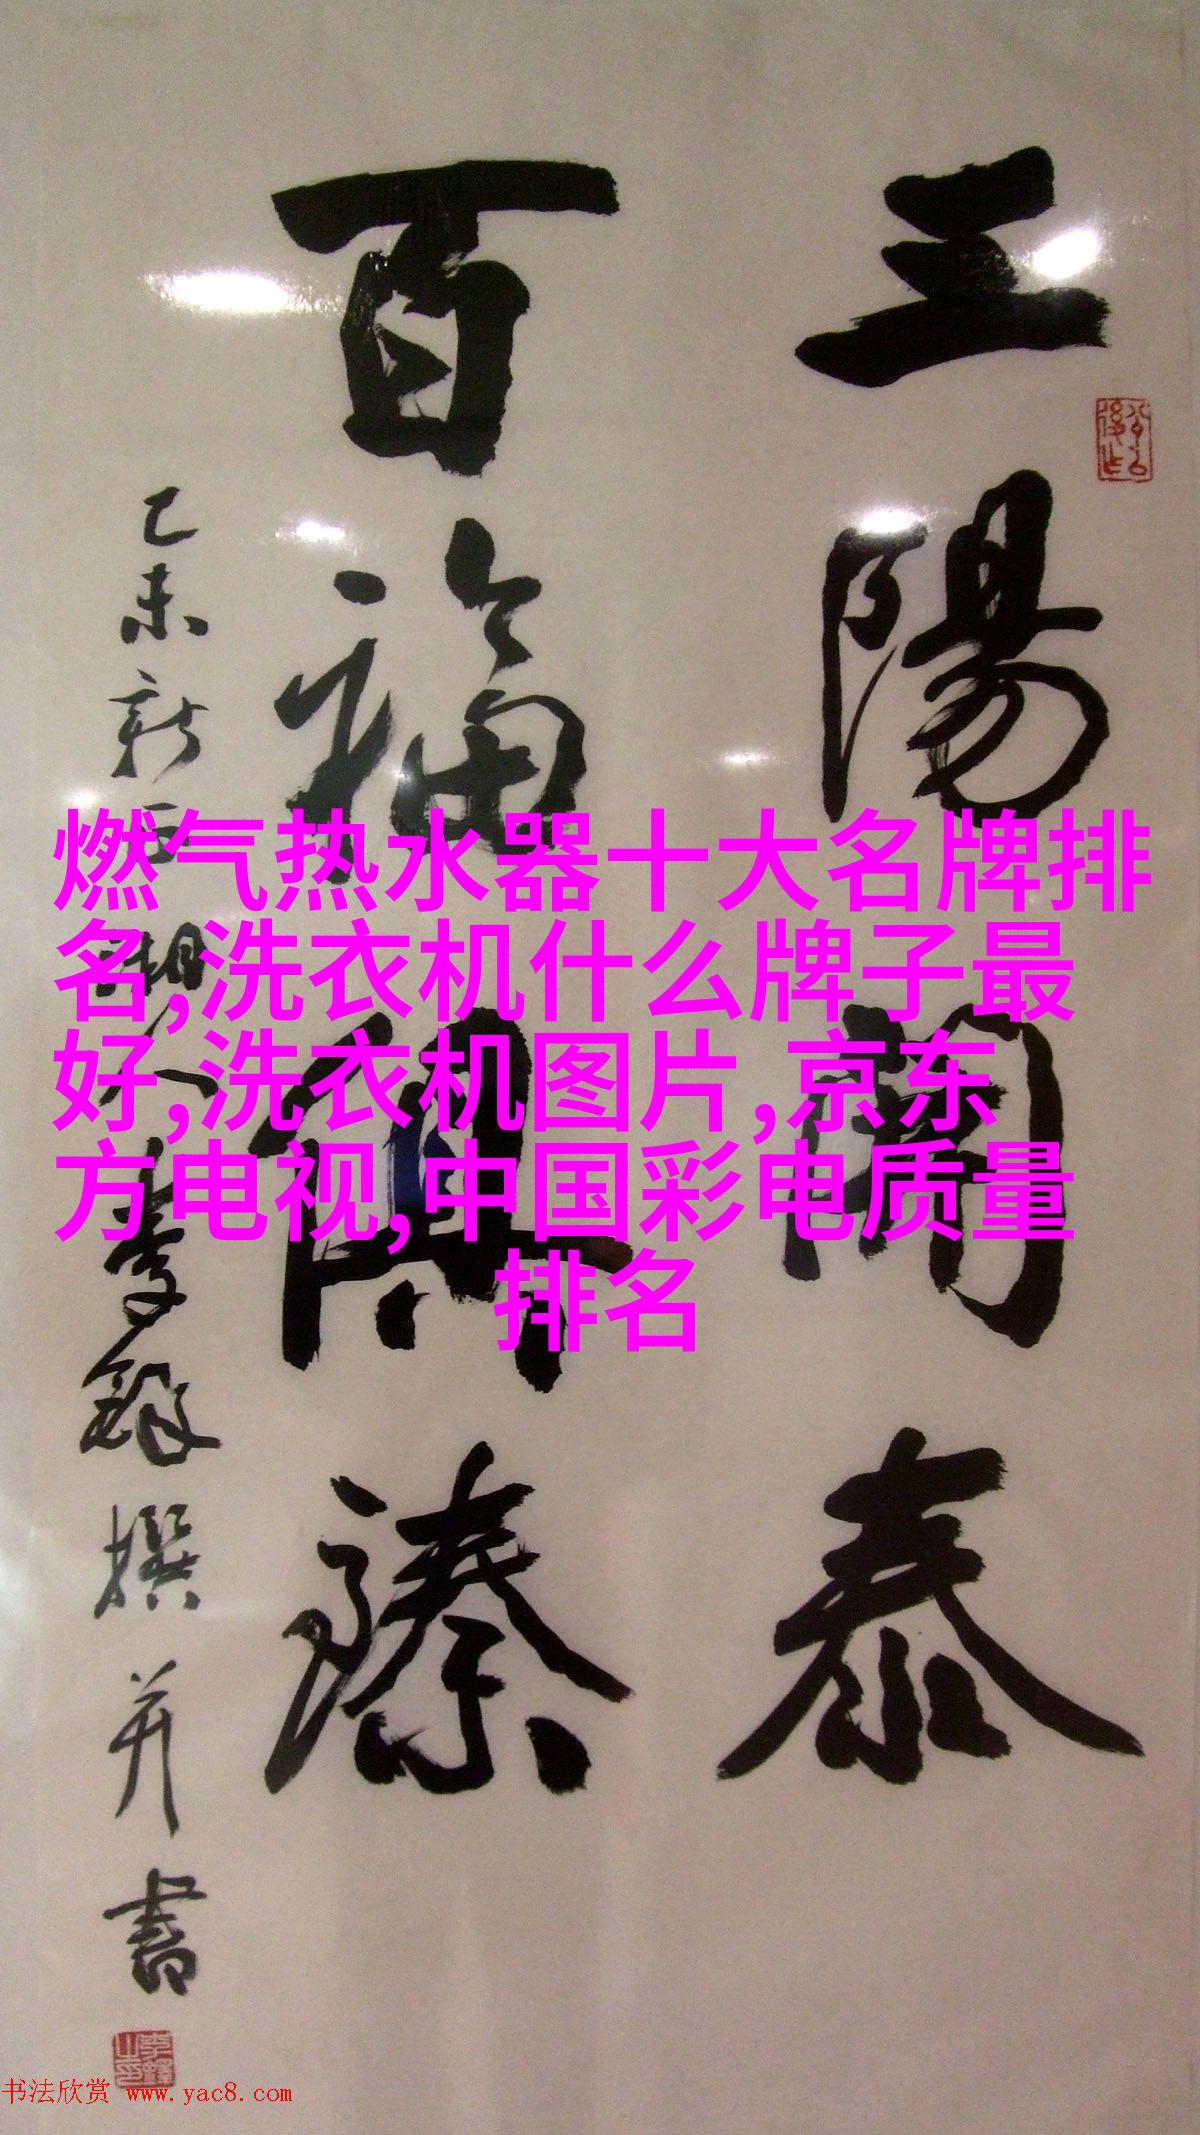 三陽開泰
百福俱臻
乙未新正湖人李鐸撰并書
燃气热水器十大名牌排
名,洗衣机什么牌子最
好,洗衣机图片,京东
方电视,中国彩电质量
排名
书法欣赏 www.yac8.com